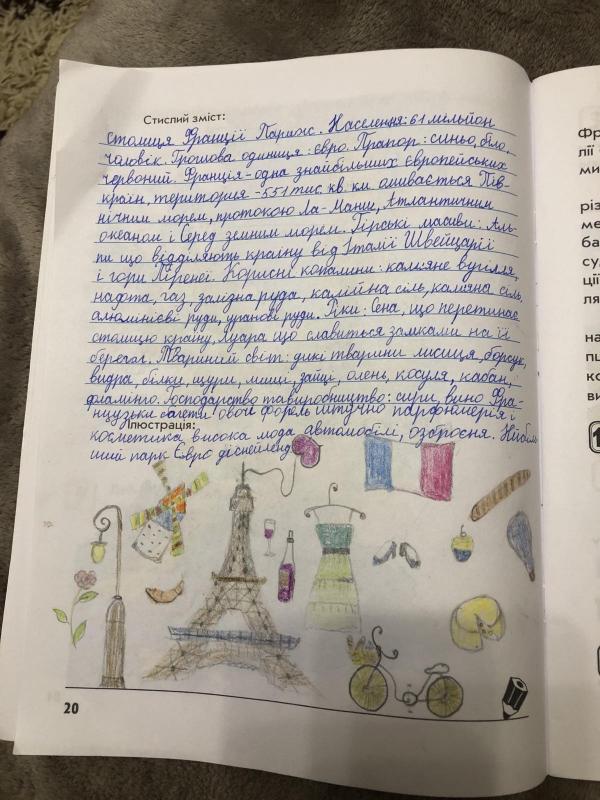 Стислий зміст:
Столиця Франції Париж. Населення: 61 мільйон
чоловік. Грошова одиниця: євро. Прапор: синьо, біло,
червоний. Франція - одна знайбільших європейських
країн, територія - 551 тис. кв. км омивається Пів-
нічним морем, протокою Ла-Манш, Атлантичним
океаном і Серед земним морем. Гірські масиви: Аль-
пи що відділяють країну від Італії Швейцарії
і гори Піренеї. Корисні копалини: кам'яне вугілля,
нафта, газ, залізна руда, калійна сіль, кам'яна сіль,
алюмінієві руди, уранові руди. Ріки: Сена, що перетинає
столицю країну, Луара що славиться замками на її
берегах. Тваринний світ: дикі тварини лисиця, борсук,
видра, білки, щури, миші, зайці, олень, косуля, кабан,
фламінго. Господарство та виробництво: сири, вино Фра-
нцузьке багети овочі форель штучно парфюмерія і
Ілюстрація:
косметика висока мода автомобілі, озброєння. Найбіль
ший парк Євро діснейленд
20
Фр
лії
ми
різ
ме
ба
суд
ції
ля
на
пш
ко
ви
1